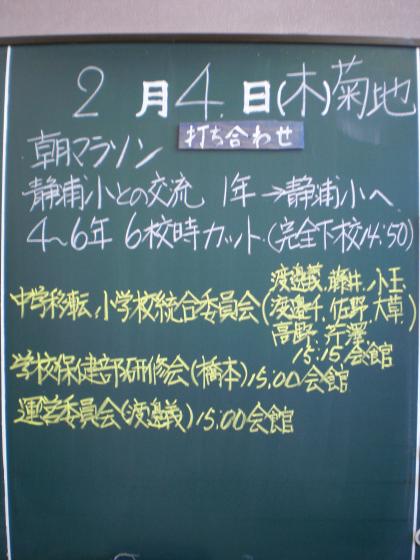 2月4日(木)菊地
打ち合わせ
朝マラソン
静浦小との交流 1年→静浦小へ
4~6年 6校時カット.(完全下校14:50)
中学移転,小学校統合委員会(渡邉義.藤井.小玉.
渡邉千.佐野.大草.)
高野.芹澤
15:15会館
学校保健部研修会(橋本)15:00会館
運営委員会(渡邉義)15:00会館